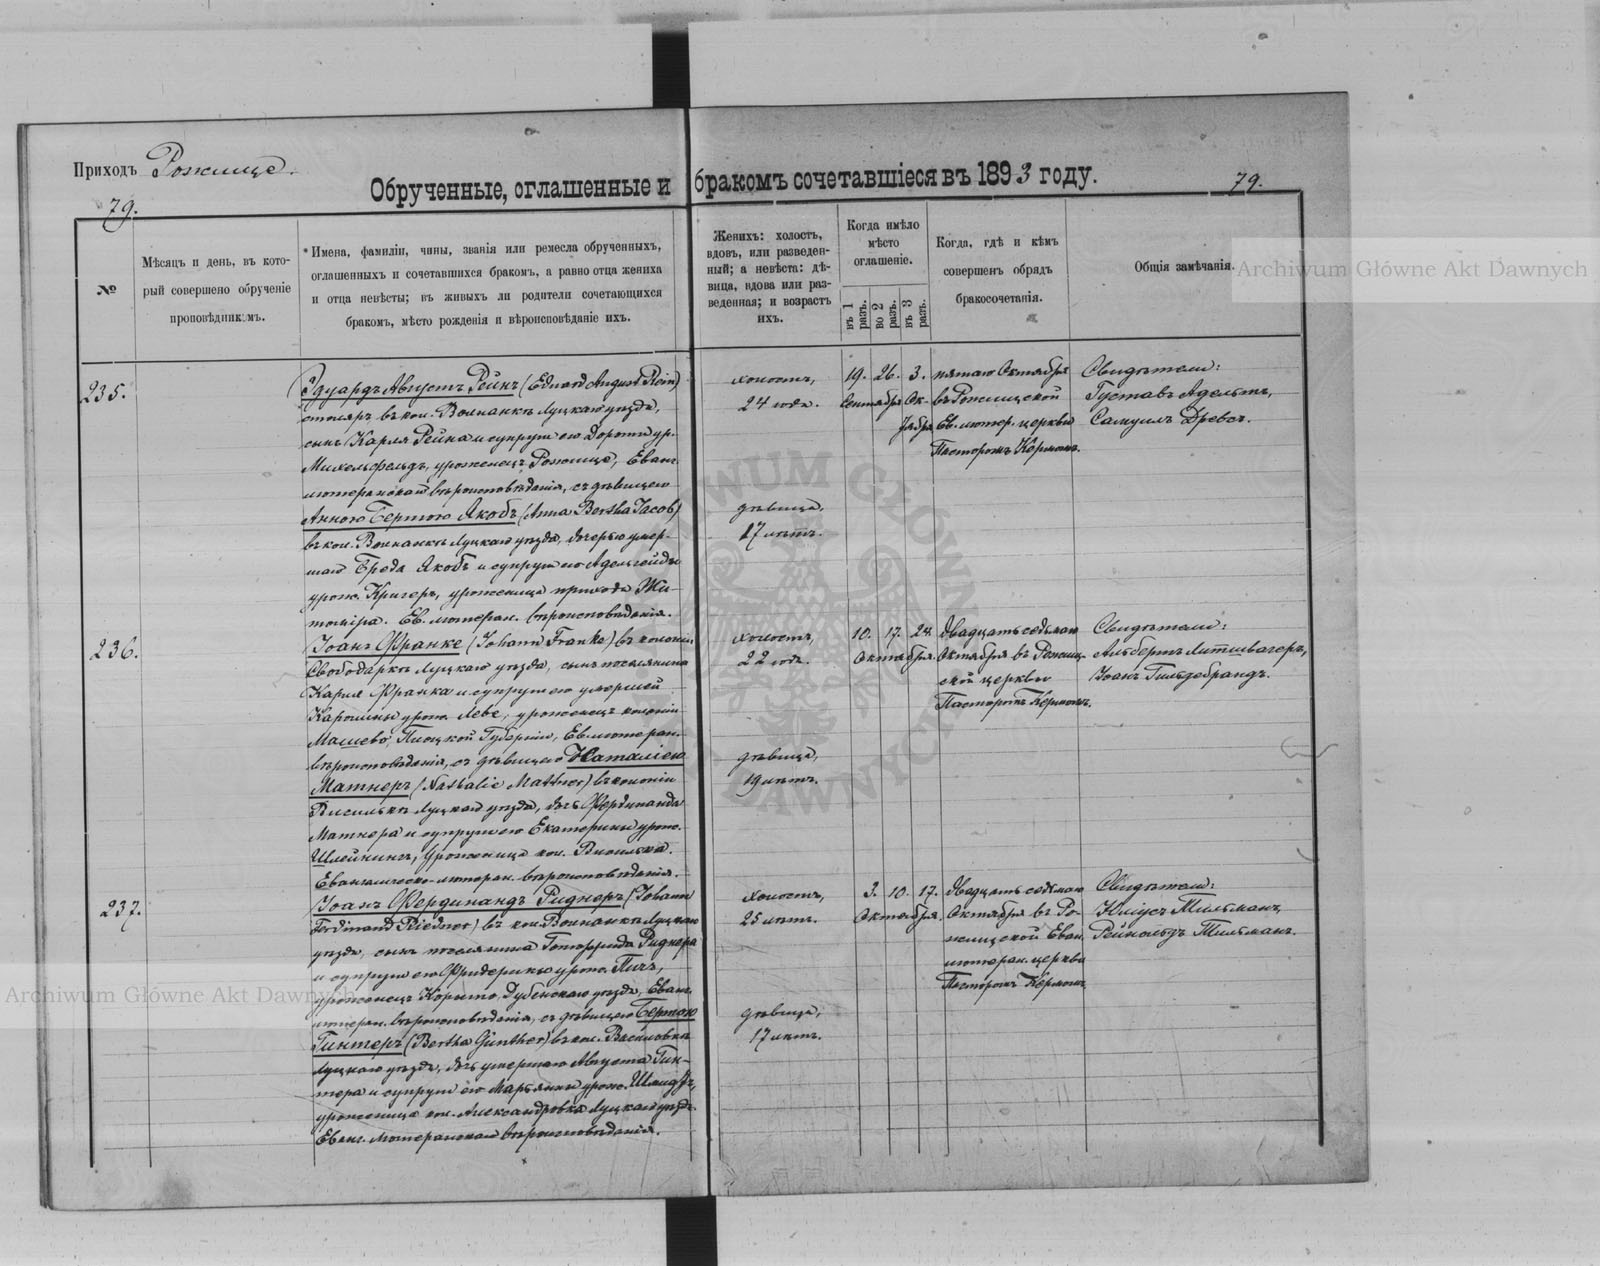 Приходъ Рожище.
Обрученные, оглашенные и бракомъ сочетавшіеся въ 1893 году.
79.
79.
№
Мѣсяцъ и день, въ кото-
рый совершено обрученіе
проповѣдникомъ.
* Имена, фамиліи, чины, званія или ремесла обрученныхъ,
оглашенныхъ и сочетавшихся бракомъ, а равно отца жениха
и отца невѣсты; въ живыхъ ли родители сочетающихся
бракомъ, мѣсто рожденія и вѣроисповѣданіе ихъ.
Женихъ: холостъ,
вдовъ, или разведен-
ный; а невѣста: дѣ-
вица, вдова или раз-
веденная; и возрастъ
ихъ.
Когда имѣло
мѣсто
оглашеніе.
въ 1
разъ.
во 2
разъ.
въ 3
разъ.
Когда, гдѣ и кѣмъ
совершенъ обрядъ
бракосочетанія.
Общія замѣчанія.
Archiwum Główne Akt Dawnych
235.
Эдуардъ Августъ Рейнъ (Eduard August Rein)
столяръ въ кол. Волнанкѣ Луцкаго уѣзда,
сынъ Карла Рейна и супруги его Доротеи ур.
Михельфельдъ, уроженецъ Рожище, Еванг.
лютеранскаго вѣроисповѣданія, съ дѣвицею
Анною Бертою Якобъ (Anna Bertha Jacob)
въ кол. Волнанкѣ Луцкаго уѣзда, дочерью умер-
шаго Якобъ и супруги его Адельгейды
урож. Кригеръ, уроженица прихода Жи-
томіра. Ев. лютеран. вѣроисповѣданія.
холостъ,
24 года.
дѣвица,
17 лѣтъ.
19. 26. 3.
Сентября Ок-
тября
пятаго Октября
въ Рожищской
Ев. лютер. церкви
Пасторомъ Керммъ.
Свидѣтели:
Густавъ Адельтъ,
Самуилъ Древсъ.
236.
Іоанъ Франке (Johann Franke) въ колоніи
Свободаркѣ Луцкаго уѣзда, сынъ поселянина
Карла Франка и супруги его умершей
Каролины урож. Лебе, уроженецъ колоніи
Машево, Плоцкой Губерніи, Ев. лютеран.
вѣроисповѣданія, съ дѣвицею Наталіею
Матнеръ (Nathalie Mattner) въ колоніи
Луцкаго уѣзда, дочь Фердинанда
Матнера и супруги его Екатерины урож.
Шлейнингъ, уроженица кол.
Евангелическо-лютеран. вѣроисповѣданія.
холостъ,
22 года.
дѣвица,
19 лѣтъ.
10. 17. 24.
Октября.
Двадцать седьмаго
Октября въ Рожищ-
ской церкви
Пасторомъ
Свидѣтели:
Альбертъ Литшвагеръ,
Іоанъ Гильдебрандъ.
237.
Іоанъ Фердинандъ Риднеръ (Johann
Ferdinand Riedner) въ кол. Волнанкѣ Луцкаго
уѣзда, сынъ поселянина Готфрида Риднера
и супруги его Фридерики урож. Пичъ,
уроженецъ Корыто, Дубенскаго уѣзда, Еванг.
лютеран. вѣроисповѣданія, съ дѣвицею Бертою
Гинтеръ (Bertha Günther) въ кол. Василовка
Луцкаго уѣзда, дочь умершаго Августа Гин-
тера и супруги его Марьянны урож. Шмидтъ,
уроженица кол. Александровка Луцкаго уѣзда.
Еванг. лютеранскаго вѣроисповѣданія.
холостъ,
25 лѣтъ.
дѣвица,
17 лѣтъ.
3. 10. 17.
Октября.
Двадцать седьмаго
Октября въ Ро-
жищской Еван.
лютеран. церкви
Пасторомъ
Свидѣтели:
Юліусъ Тильманъ,
Рейнольдъ Тильманъ.
Archiwum Główne Akt Dawnych
ARCHIWUM GŁÓWNE AKT DAWNYCH